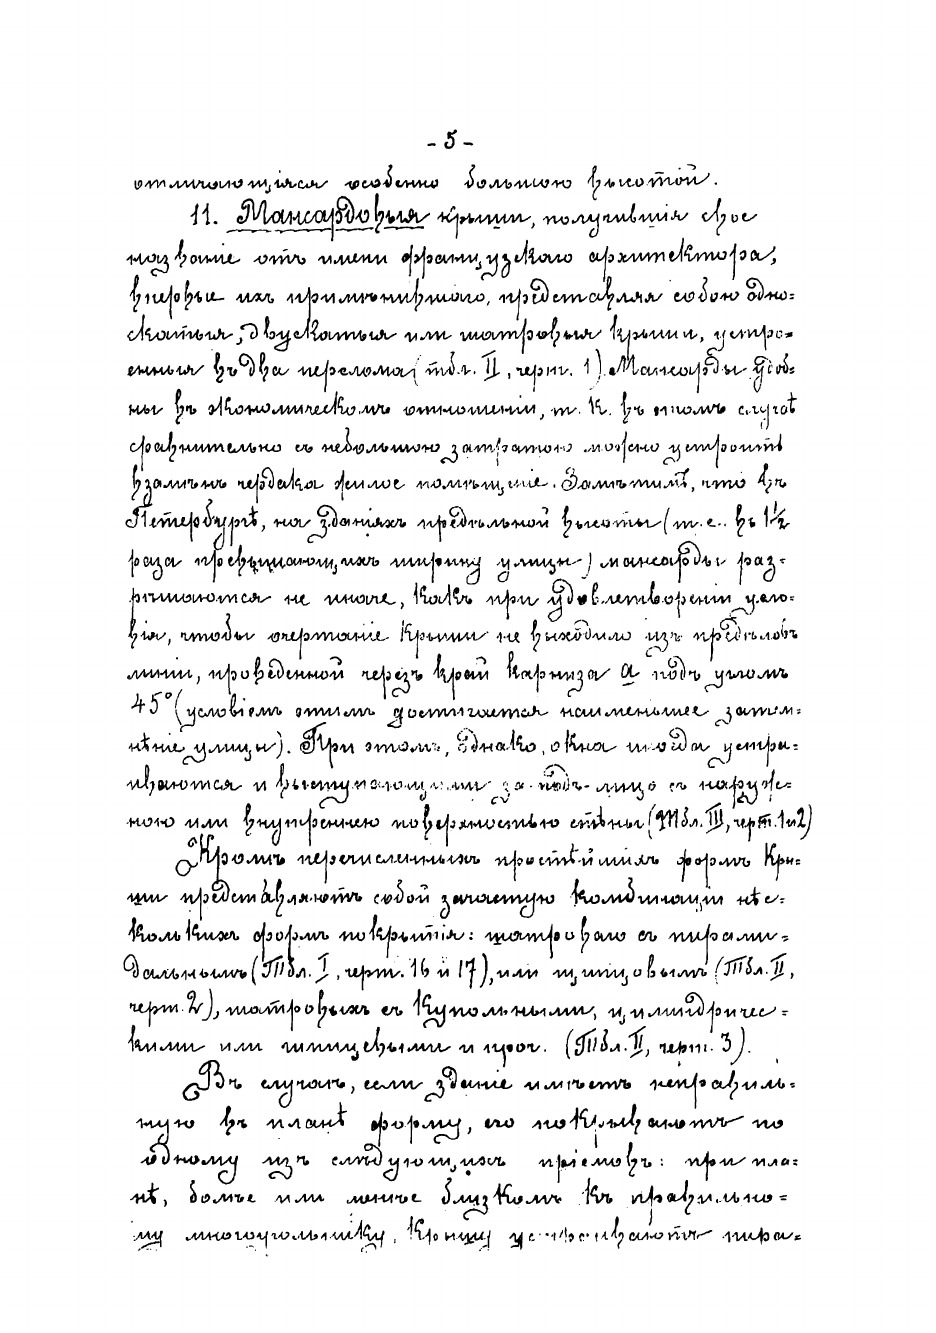 - 5 -
отличающіяся особенно большою высотой.
11. Мансардовыя крыши, получившія свое
названіе отъ имени французскаго архитектора,
впервые ихъ примѣнившаго, представляя собою одно=
скатыя, двускатыя или шатровыя крыши, устро=
енныя въ два перелома (тбл. II, черт. 1). Мансарды удоб=
ны въ экономическомъ отношеніи, т. к. въ этомъ случаѣ
сравнительно съ небольшою затратою можно устроить
взамѣнъ чердака жилое помѣщеніе. Замѣтимъ, что въ
Петербургѣ, на зданіяхъ предѣльной высоты (т. е. въ 1 1/2
раза превышающихъ ширину улицы) мансарды раз=
рѣшаются не иначе, какъ при удовлетвореніи усло=
вія, чтобы очертаніе крыши не выходило изъ предѣловъ
линіи, проведенной черезъ край карниза а подъ угломъ
45° (условіемъ этимъ достигается наименьшее затем=
нѣніе улицы). При этомъ, однако, окна иногда устра=
иваются и выступающими за подъ-лицо съ наруж=
ною или внутреннею поверхностью стѣны (Тбл. III, черт. 1 и 2)
Кромѣ перечисленныхъ простѣйшихъ формъ кры=
ши представляютъ собой зачастую комбинаціи нѣс=
колькихъ формъ покрытія: шатроваго съ пирами=
дальнымъ (Тбл. I, черт. 16 и 17), или щипцовымъ (Тбл. II,
черт. 2), шатровыхъ съ купольными, цилиндричес=
кими или шпицевыми и проч. (Тбл. II, черт. 3).
Въ случаѣ, если зданіе имѣетъ неправиль=
ную въ планѣ форму, его покрываютъ по
одному изъ слѣдующихъ пріемовъ: при пла=
нѣ, болѣе или менѣе близкомъ къ правильно=
му многоугольнику, крышу устраиваютъ пира=